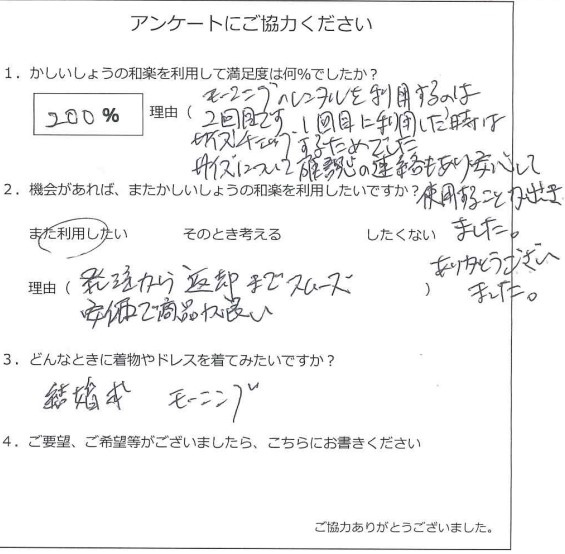 アンケートにご協力ください
1．かしいしょうの和楽を利用して満足度は何%でしたか？
200 %
理由（
モーニングのレンタルを利用するのは
2回目です。1回目に利用した時は
サイズチェックするためでした
サイズについて確認の連絡もあり安心して
使用することが出来
ました。
ありがとうござい
ました。
2．機会があれば、またかしいしょうの和楽を利用したいですか？
また利用したい　そのとき考える　したくない
理由（ 発注から返却までスムーズ ）
安価で商品が良い
3．どんなときに着物やドレスを着てみたいですか？
結婚式　モーニング
4．ご要望、ご希望等がございましたら、こちらにお書きください
ご協力ありがとうございました。